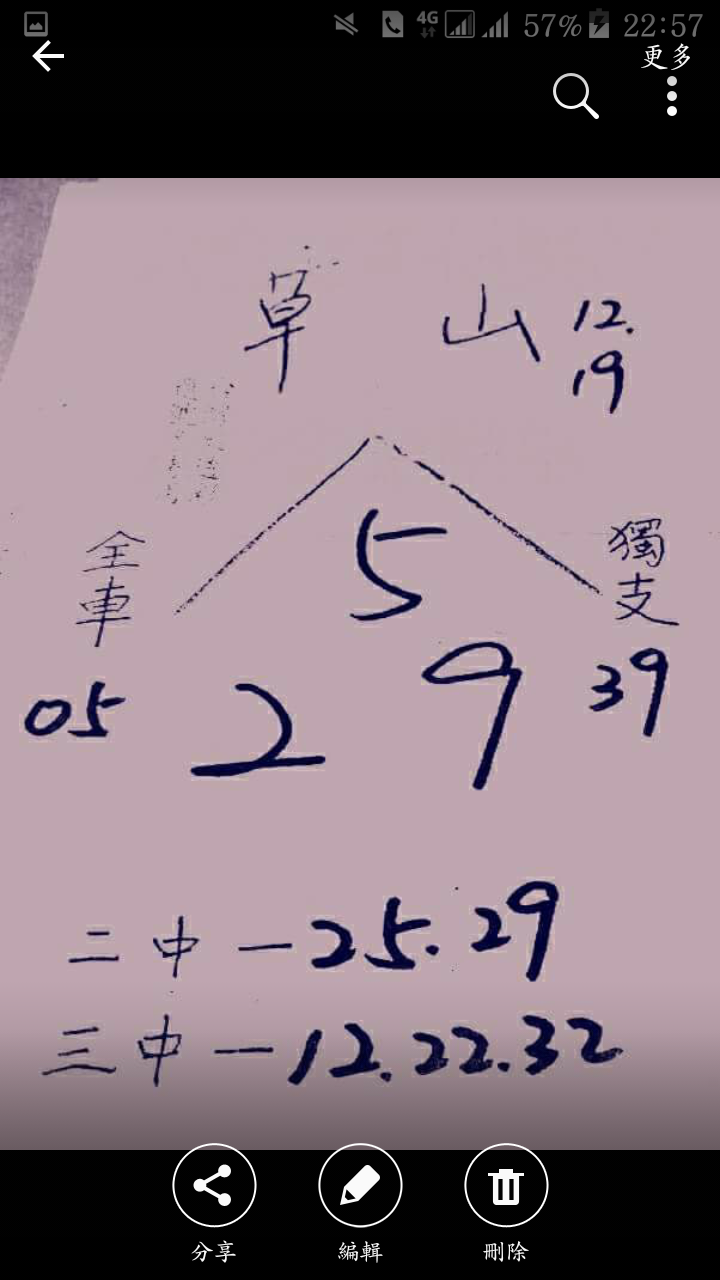 57% 22:57
4G
更多
草 山 12.
19
全車
獨支
5
05 2 9 39
二中一25.29
三中一12.22.32
分享 編輯 刪除